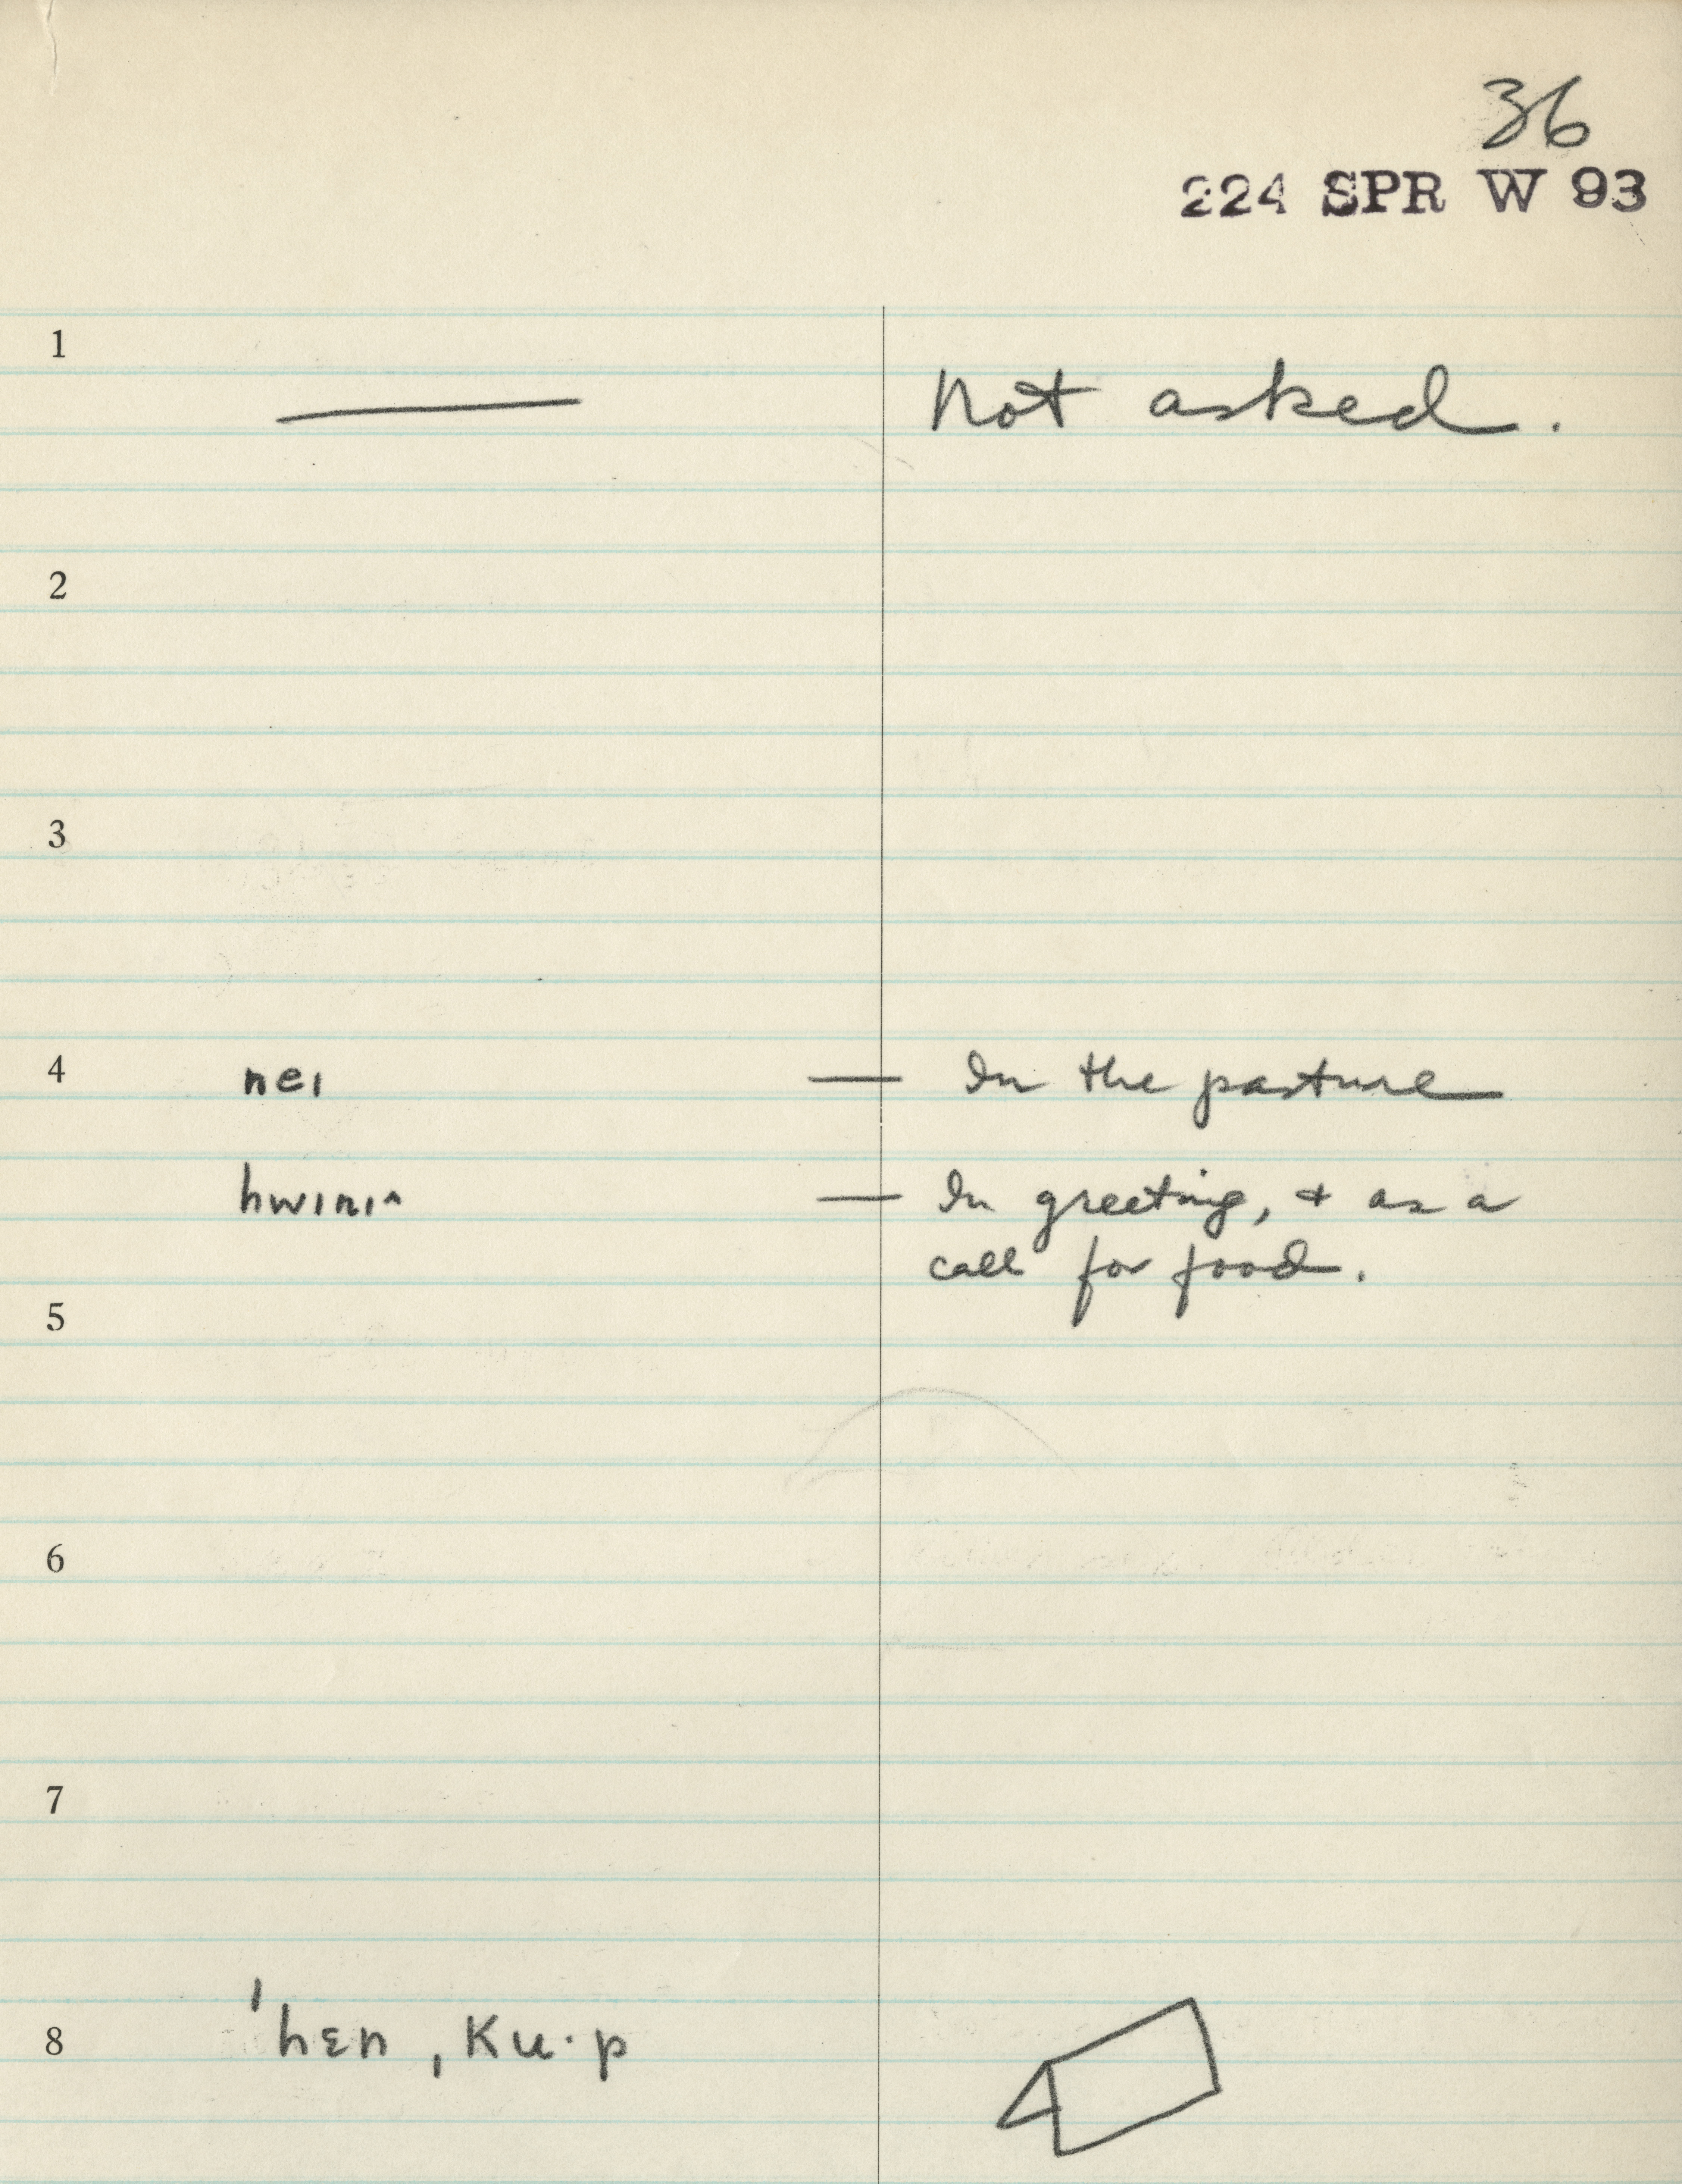 36
224 SPR W 93
1
Not asked.
2
3
4 neɪ — In the pasture
hwɪnɪ^ — In greeting, + as a
call for food.
5
6
7
8 ˈhɛn ˌku·p